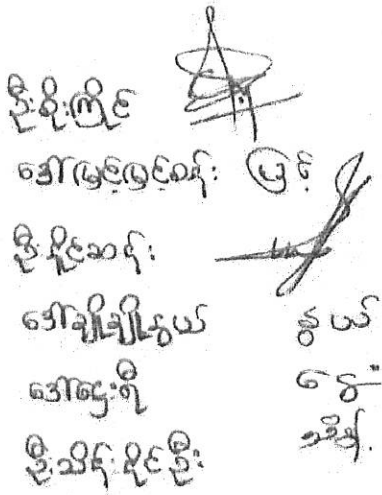 ဦးစိုးကြိုင်
ဒေါ်မြင့်မြင့်စန်း မြင့်
ဦးခိုင်ဆန်း
ဒေါ်ချိုချိုနွယ် နွယ်
ဒေါ်ဌေးရီ
ဦးသိန်းဇိုင်ဦး